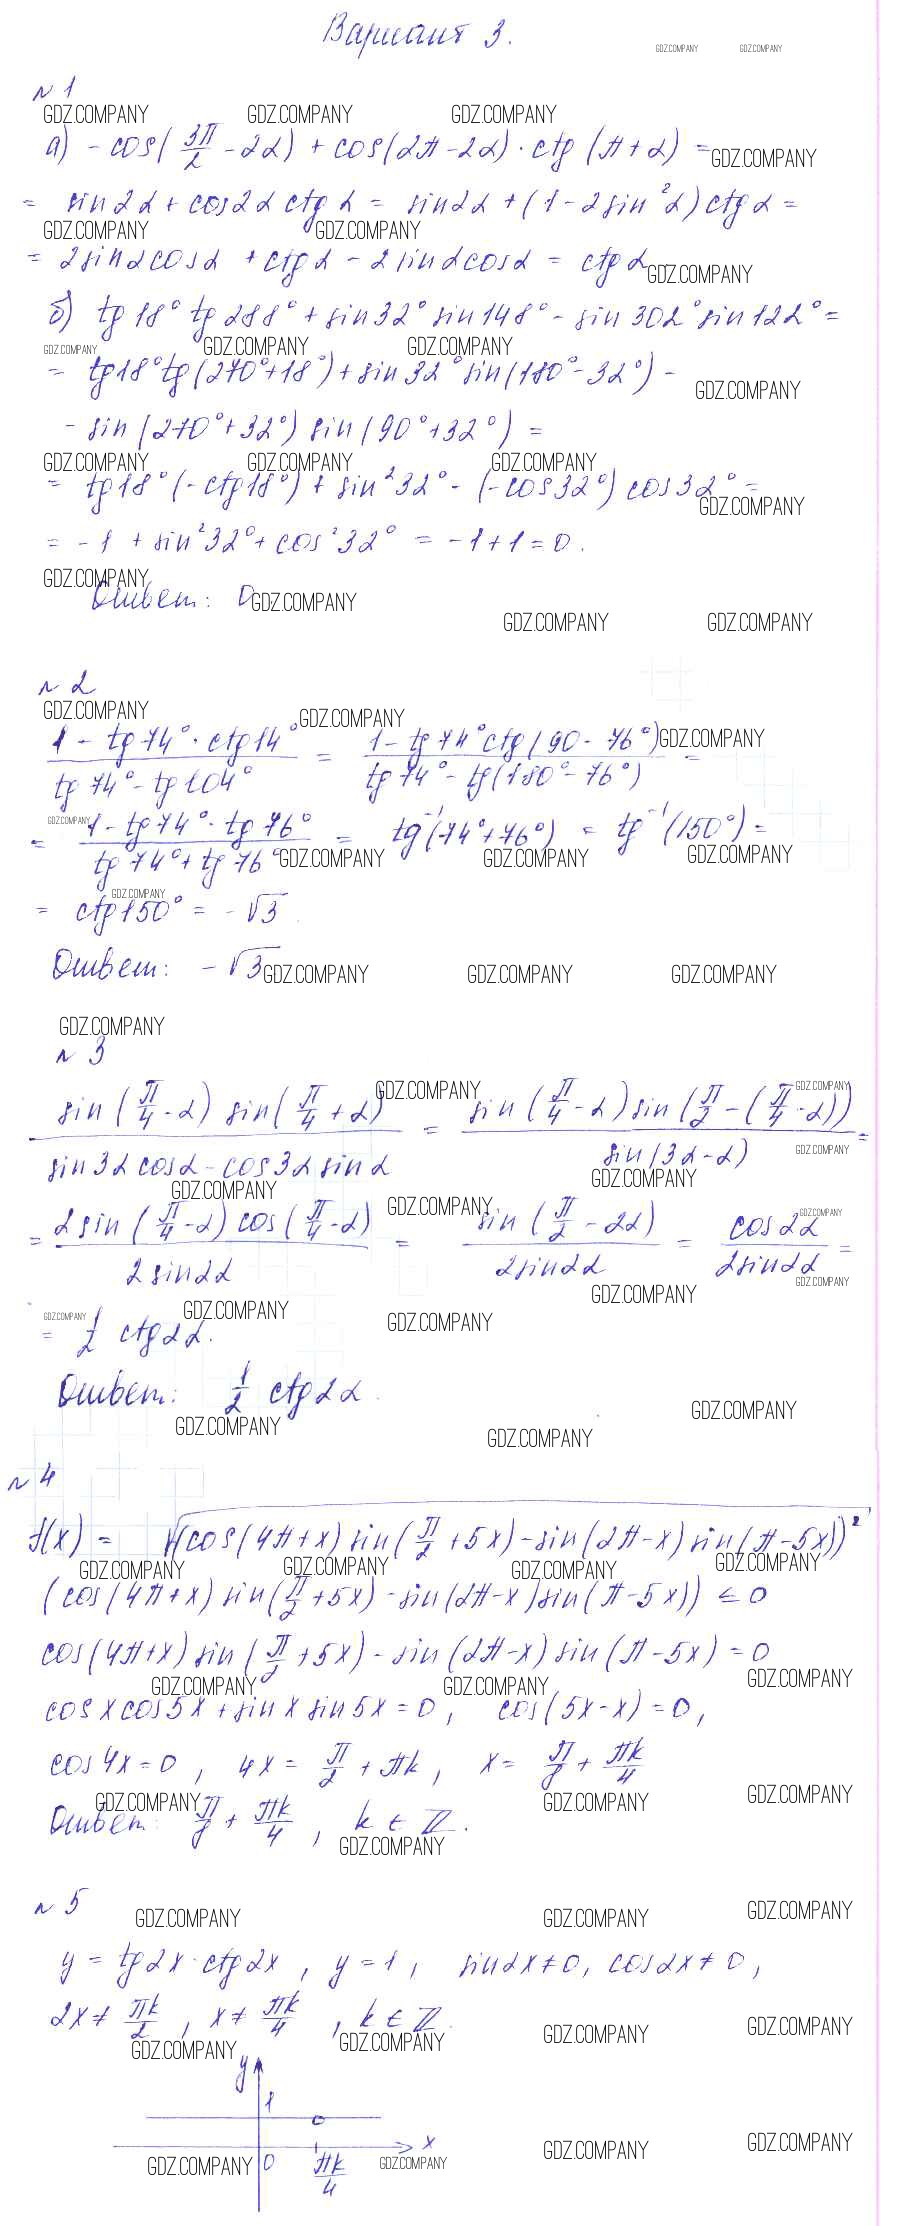 Вариант 3.
GDZ.COMPANY GDZ.COMPANY
№ 1
GDZ.COMPANY GDZ.COMPANY GDZ.COMPANY
а) - cos(3π/2 - 2α) + cos(2π - 2α) · ctg(π + α) =
GDZ.COMPANY
= sin2α + cos2α ctgα = sin2α + (1 - 2sin²α) ctgα =
GDZ.COMPANY GDZ.COMPANY
= 2sinαcosα + ctgα - 2sinαcosα = ctgα
GDZ.COMPANY
б) tg18° tg288° + sin32° sin148° - sin302° sin122° =
GDZ.COMPANY GDZ.COMPANY GDZ.COMPANY
= tg18° tg(270°+18°) + sin32° sin(180°-32°) -
GDZ.COMPANY
- sin(270°+32°) sin(90°+32°) =
GDZ.COMPANY GDZ.COMPANY GDZ.COMPANY
= tg18° (-ctg18°) + sin²32° - (-cos32°) cos32° =
GDZ.COMPANY
= -1 + sin²32° + cos²32° = -1+1=0.
GDZ.COMPANY
Ответ: 0
GDZ.COMPANY
GDZ.COMPANY GDZ.COMPANY
№ 2
GDZ.COMPANY GDZ.COMPANY
(1 - tg74° · ctg14°)/(tg74° - tg104°) = (1 - tg74° ctg(90 - 76°))/(tg74° - tg(180° - 76°)) =
GDZ.COMPANY
GDZ.COMPANY
= (1 - tg74° · tg76°)/(tg74° + tg76°) = tg⁻¹(74°+76°) = tg⁻¹(150°) =
GDZ.COMPANY GDZ.COMPANY GDZ.COMPANY
GDZ.COMPANY
= ctg150° = -√3.
Ответ: -√3
GDZ.COMPANY GDZ.COMPANY GDZ.COMPANY
GDZ.COMPANY
№ 3
GDZ.COMPANY GDZ.COMPANY
(sin(π/4 - α) sin(π/4 + α))/(sin3α cosα - cos3α sinα) = (sin(π/4 - α) sin(π/2 - (π/4 - α)))/(sin(3α - α)) =
GDZ.COMPANY
GDZ.COMPANY GDZ.COMPANY
GDZ.COMPANY GDZ.COMPANY
= (2sin(π/4 - α) cos(π/4 - α))/(2sin2α) = (sin(π/2 - 2α))/(2sin2α) = (cos2α)/(2sin2α) =
GDZ.COMPANY GDZ.COMPANY
GDZ.COMPANY GDZ.COMPANY GDZ.COMPANY
= 1/2 ctg2α.
Ответ: 1/2 ctg2α.
GDZ.COMPANY GDZ.COMPANY GDZ.COMPANY
№ 4
f(x) = √((cos(4π+x) sin(π/2 + 5x) - sin(2π-x) sin(π-5x))²
GDZ.COMPANY GDZ.COMPANY GDZ.COMPANY GDZ.COMPANY
(cos(4π+x) sin(π/2 + 5x) - sin(2π-x) sin(π-5x)) ≤ 0
cos(4π+x) sin(π/2 + 5x) - sin(2π-x) sin(π-5x) = 0
GDZ.COMPANY GDZ.COMPANY GDZ.COMPANY
cosx cos5x + sinx sin5x = 0, cos(5x-x) = 0,
cos4x = 0, 4x = π/2 + πk, x = π/8 + πk/4
GDZ.COMPANY GDZ.COMPANY GDZ.COMPANY
Ответ: π/8 + πk/4, k ∈ Z.
GDZ.COMPANY
№ 5
GDZ.COMPANY GDZ.COMPANY GDZ.COMPANY
y = tg2x · ctg2x, y = 1, sin2x ≠ 0, cos2x ≠ 0,
2x ≠ πk/2, x ≠ πk/4, k ∈ Z.
GDZ.COMPANY GDZ.COMPANY GDZ.COMPANY GDZ.COMPANY
y
1
x
0
πk/4
GDZ.COMPANY GDZ.COMPANY GDZ.COMPANY GDZ.COMPANY